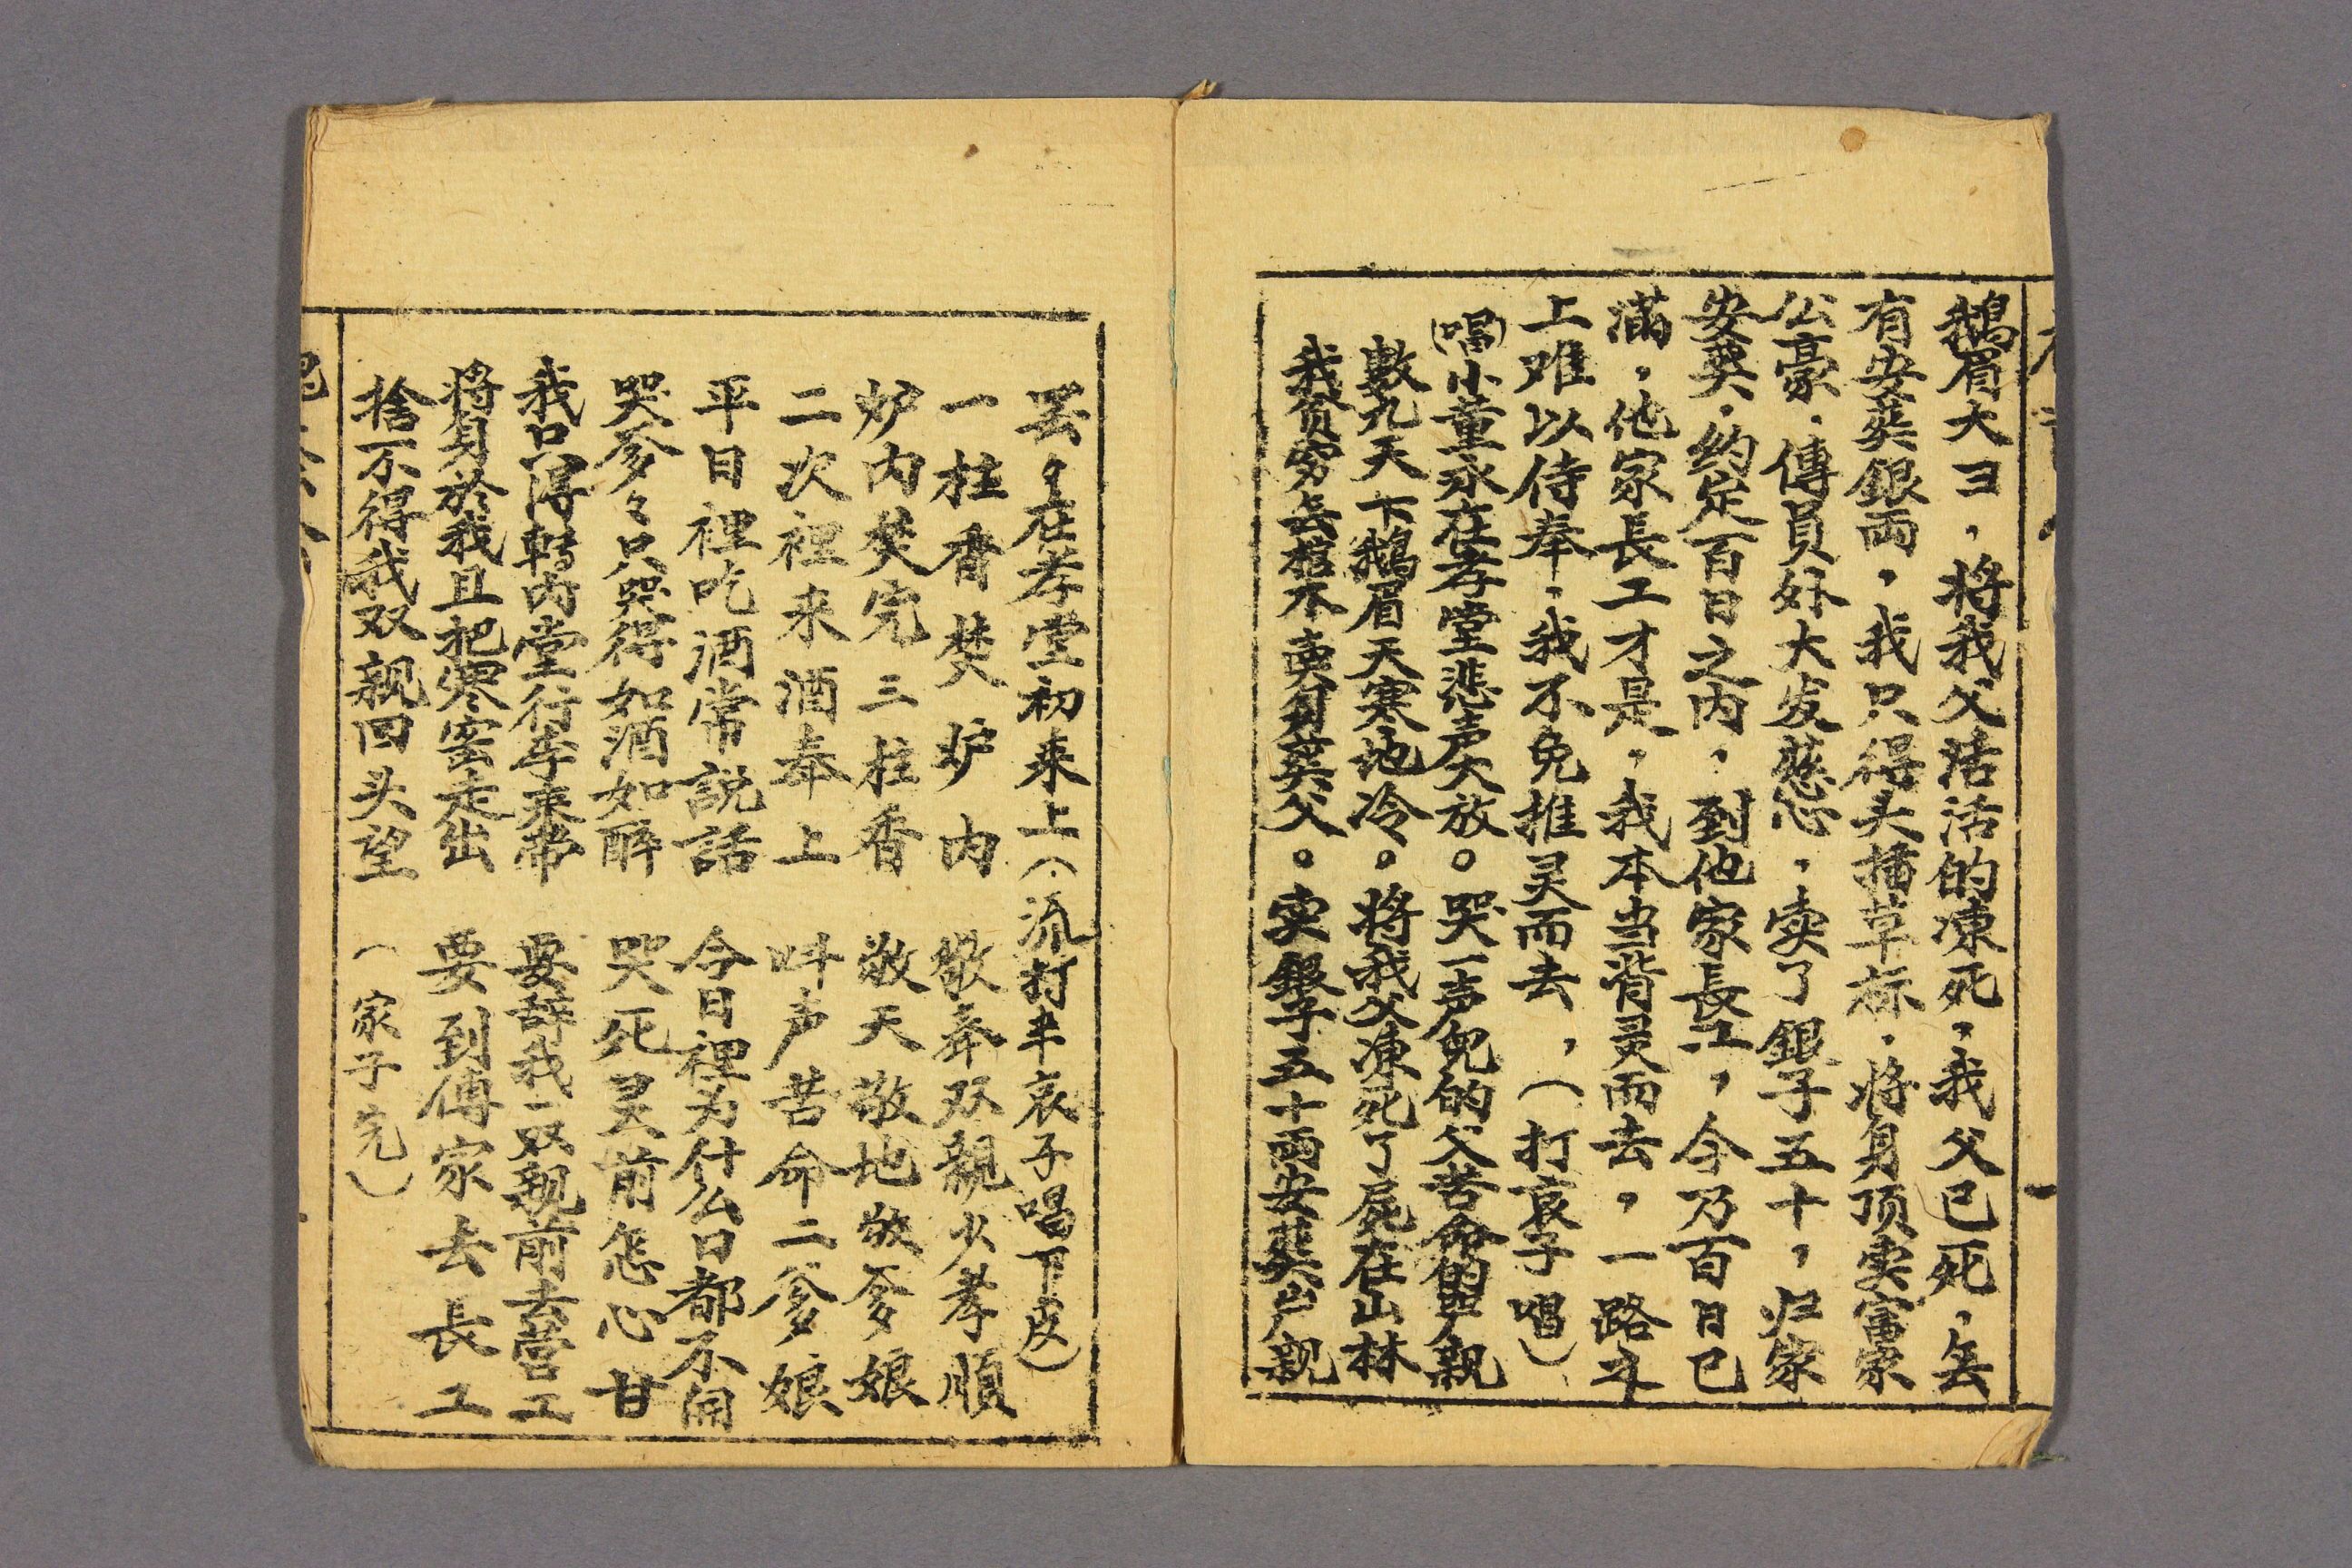 鵝眉大ヨ，將我父活活的凍死，我父已死，無
有安葬銀両，我只得头插草标，將身顶卖富家
公豪，傅員外大发慈心，卖了銀子五十，归家
安葬，約定百日之内，到他家長工，今乃百日已
滿，他家長工才是，我本当背灵而去，一路之
上难以侍奉，我不免推灵而去，（打哀子唱）
（唱）小董永在孝堂悲声大放。哭一声兒的父苦命的尸親
數九天下鵝眉天寒地冷。將我父凍死了屍在山林
我貧穷去棺木賣身葬父。卖銀子五十両安葬尸親
罢々在孝堂初来上（流打半哀子唱下皮）
一柱香焚炉内 敬奉双親火孝順
炉内焚完三柱香 敬天敬地敬爹娘
二次裡来酒奉上 叫声苦命二爹娘
平日裡吃酒常説話 今日裡为什么口都不開
哭爹々只哭得如酒如醉 哭死灵前怎心甘
我只得轉内堂行李来带 要辞我双親前去营工
將身於我且把寒窑走出 要到傅家去長工
捨不得我双親回头望（家子完）